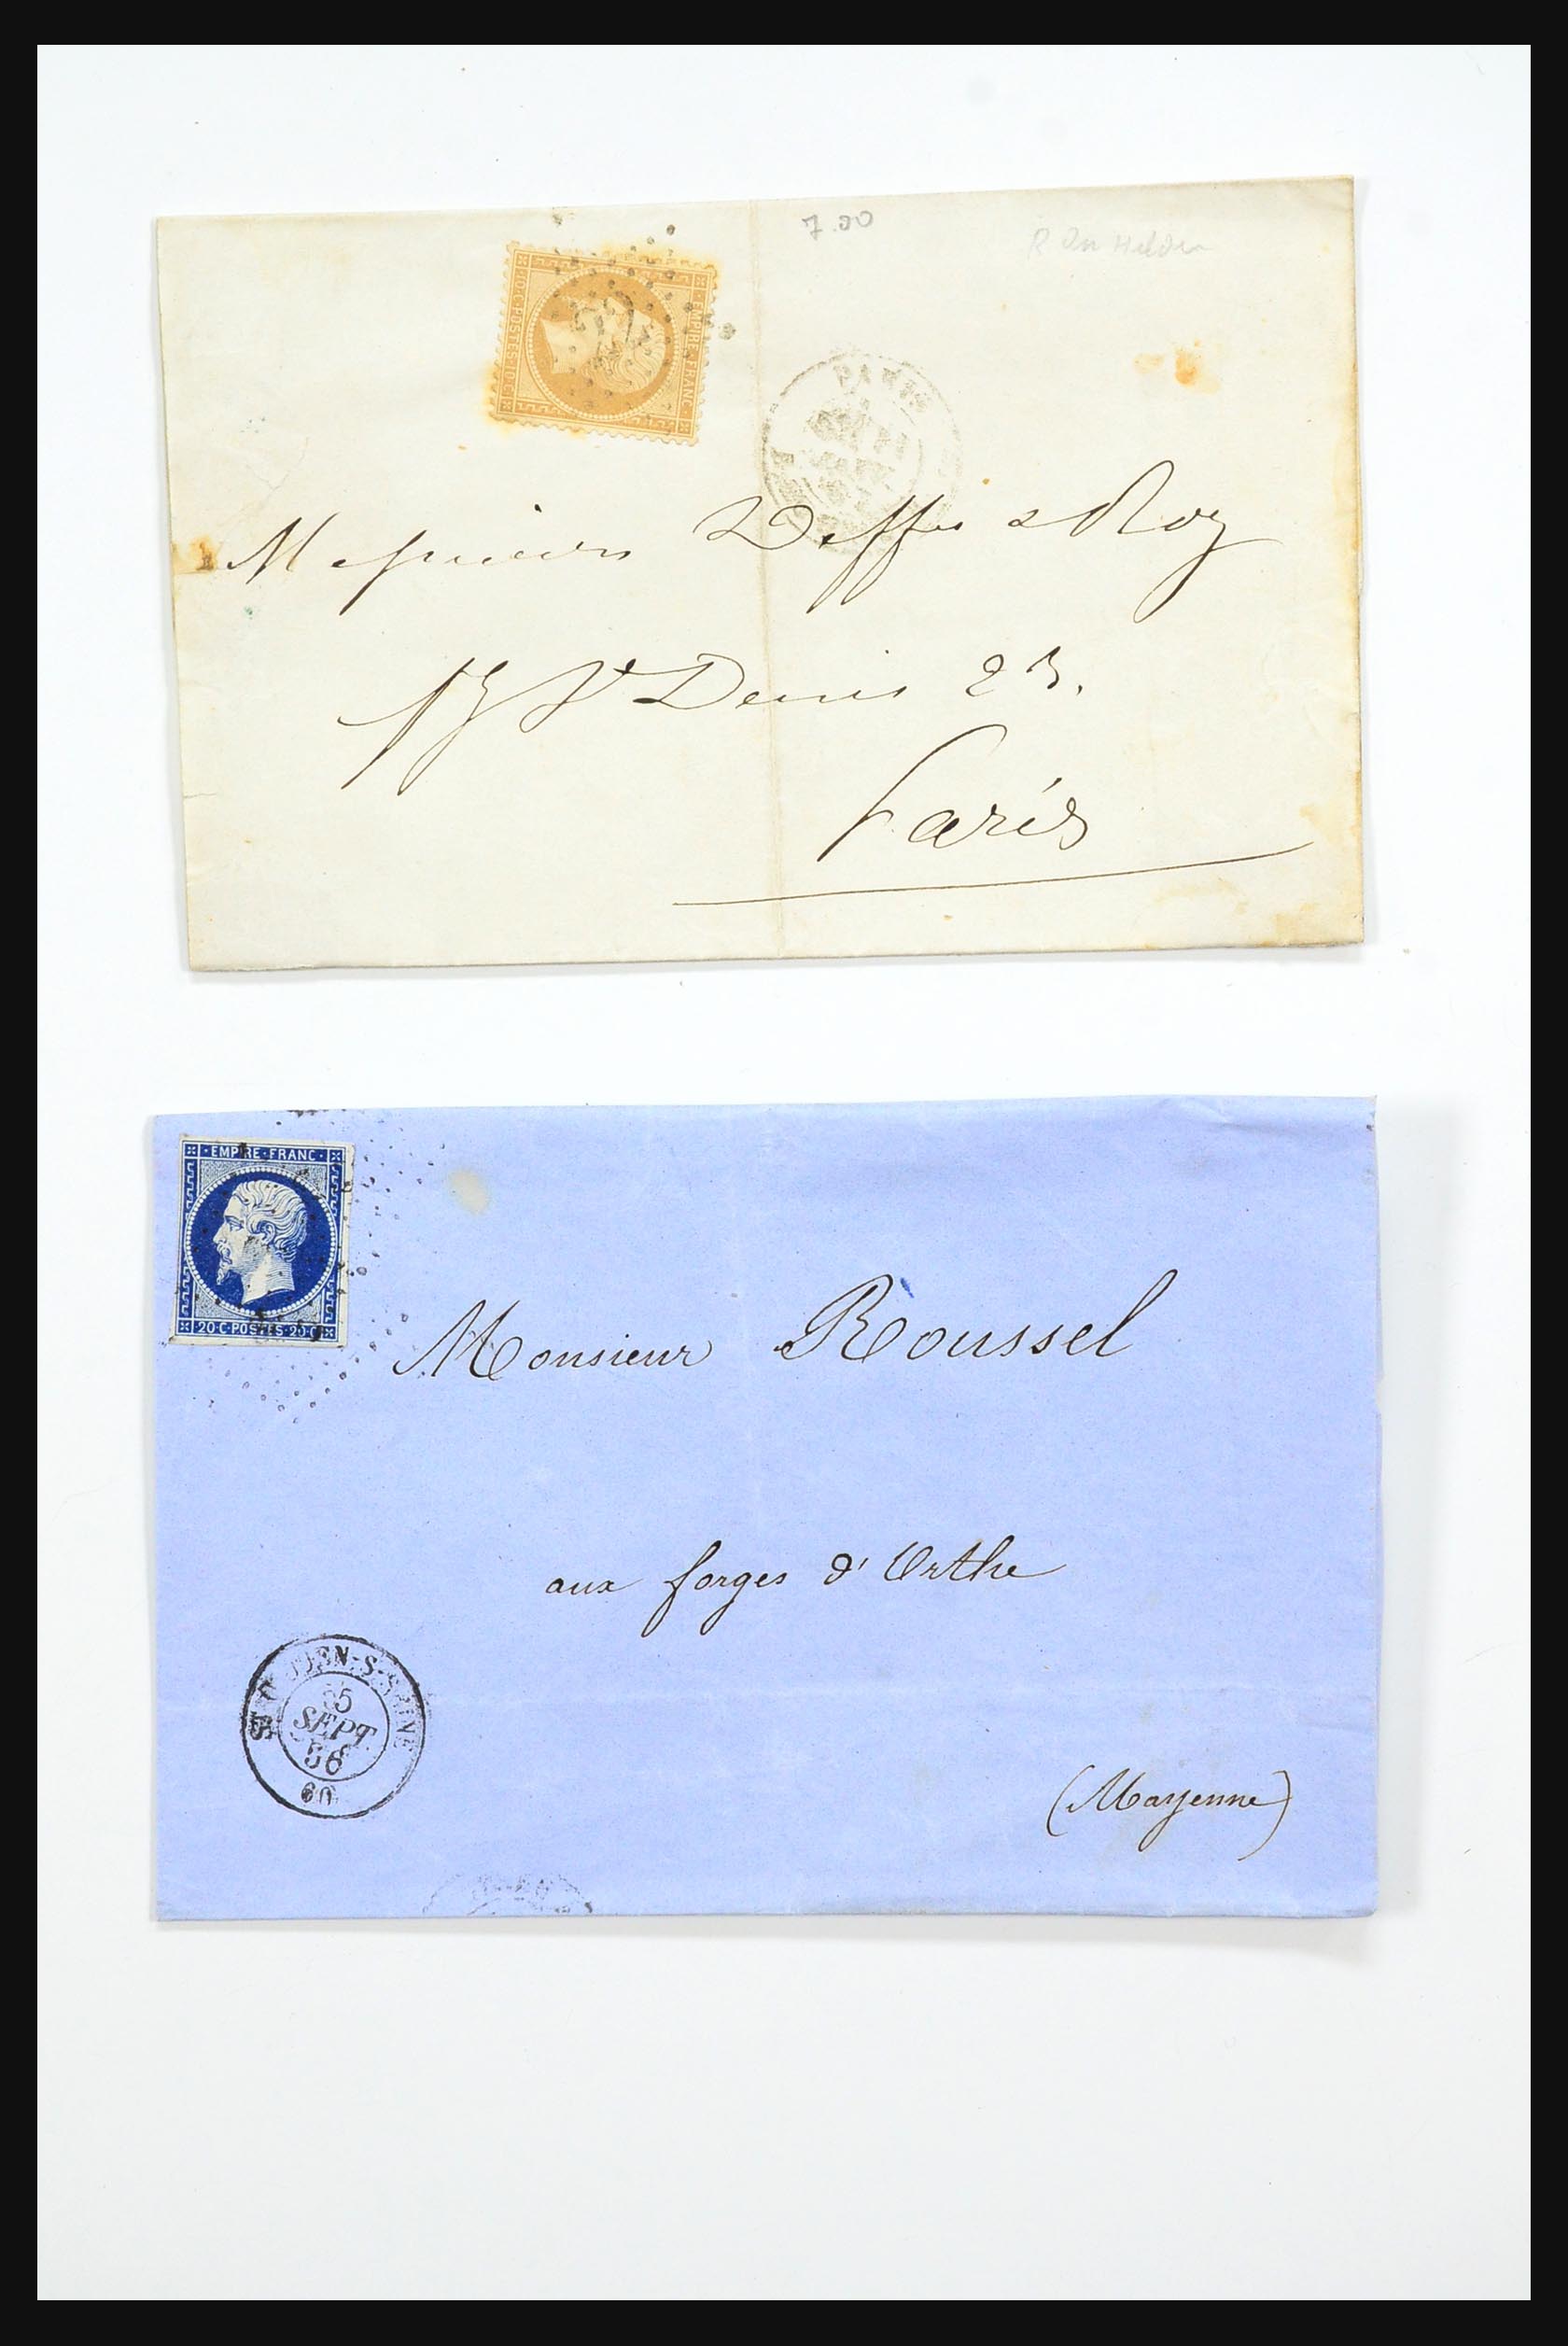 7.00
EMPIRE · FRANC
10·C·POSTES·10·C
22
PARIS
Messieurs Deffes & Roy
St Denis 23.
Paris
· EMPIRE · FRANC ·
20·C·POSTES·20·C
Monsieur Roussel
aux forges d'Orthe
(Mayenne)
ST OUEN-S-SEINE
SEPT.
56
60